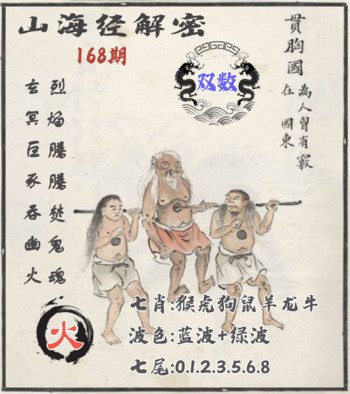 山海经解密
168期
双数
贯胸國
為人匈有竅
在 國東
烈焰騰騰焚鬼魂
玄冥巨豕吞幽火
火
七肖:猴虎狗鼠羊龙牛
波色:蓝波+绿波
七尾:0.1.2.3.5.6.8